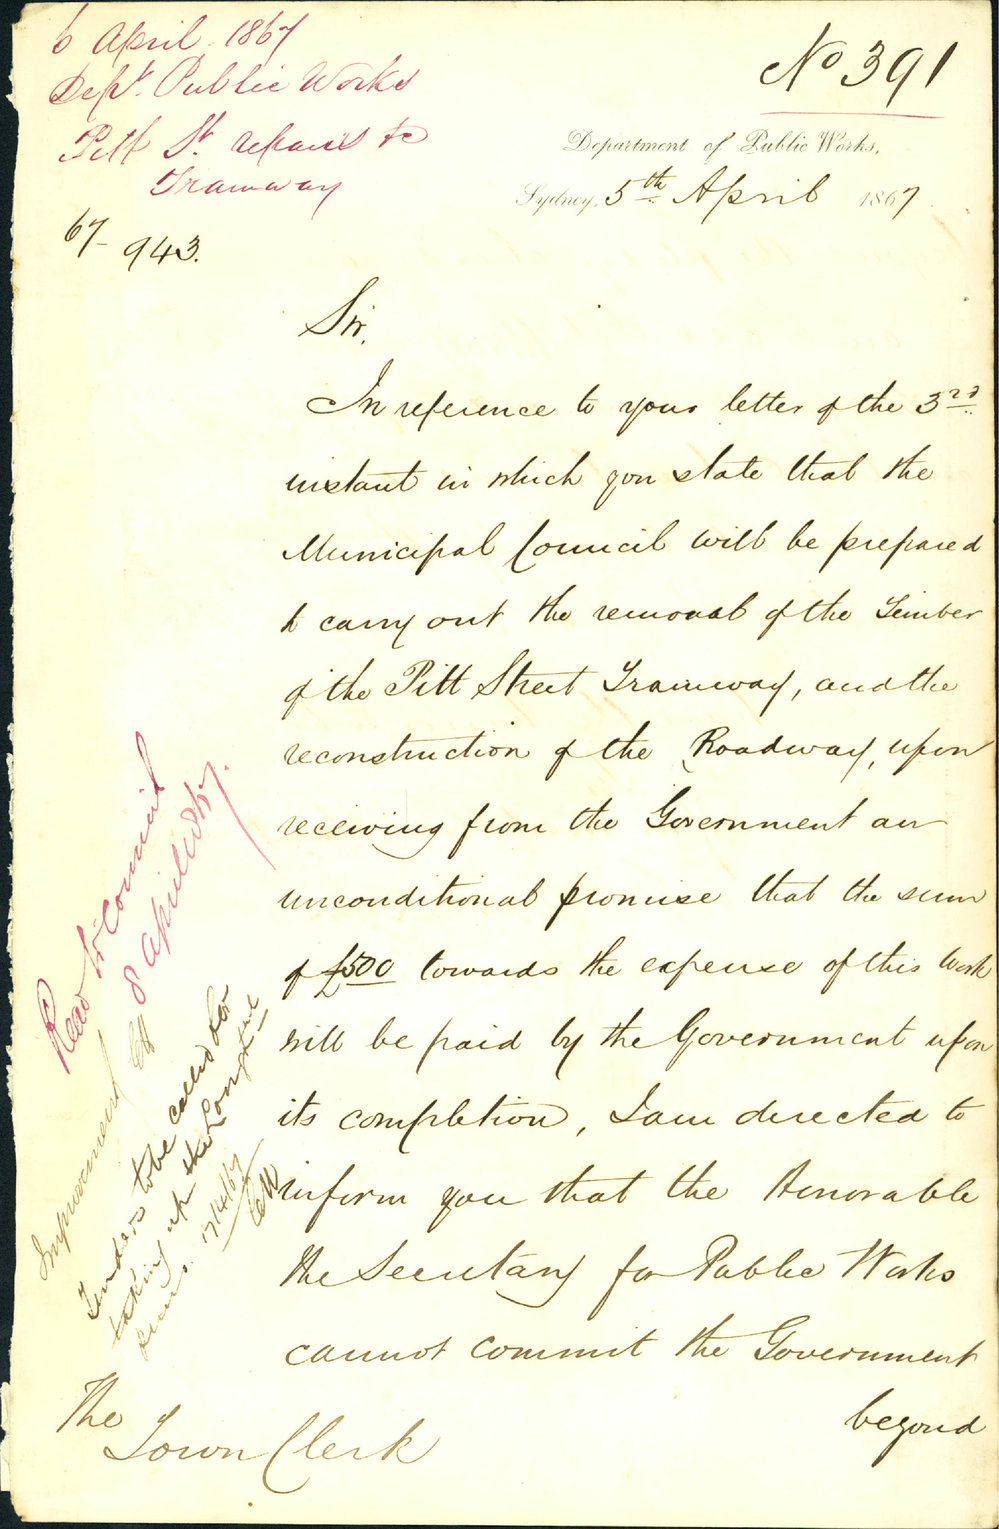 6 April 1867
Dept. Public Works
Pitt St. repairs &c
Tramway
67-943.
No 391
Department of Public Works,
Sydney, 5th April 1867
Sir,
In reference to your letter of the 3rd
instant in which you state that the
Municipal Council will be prepared
to carry out the removal of the Timber
of the Pitt Street Tramway, and the
reconstruction of the Roadway, upon
receiving from the Government an
unconditional promise that the sum
of £500 towards the expense of this work
will be paid by the Government upon
its completion, I am directed to
inform you that the Honorable
the Secretary for Public Works
cannot commit the Government
beyond
The
Town Clerk
Read in Council
8 April 1867.
Improvement
Tenders to be called for
taking up the Longitudinal
17/4/67